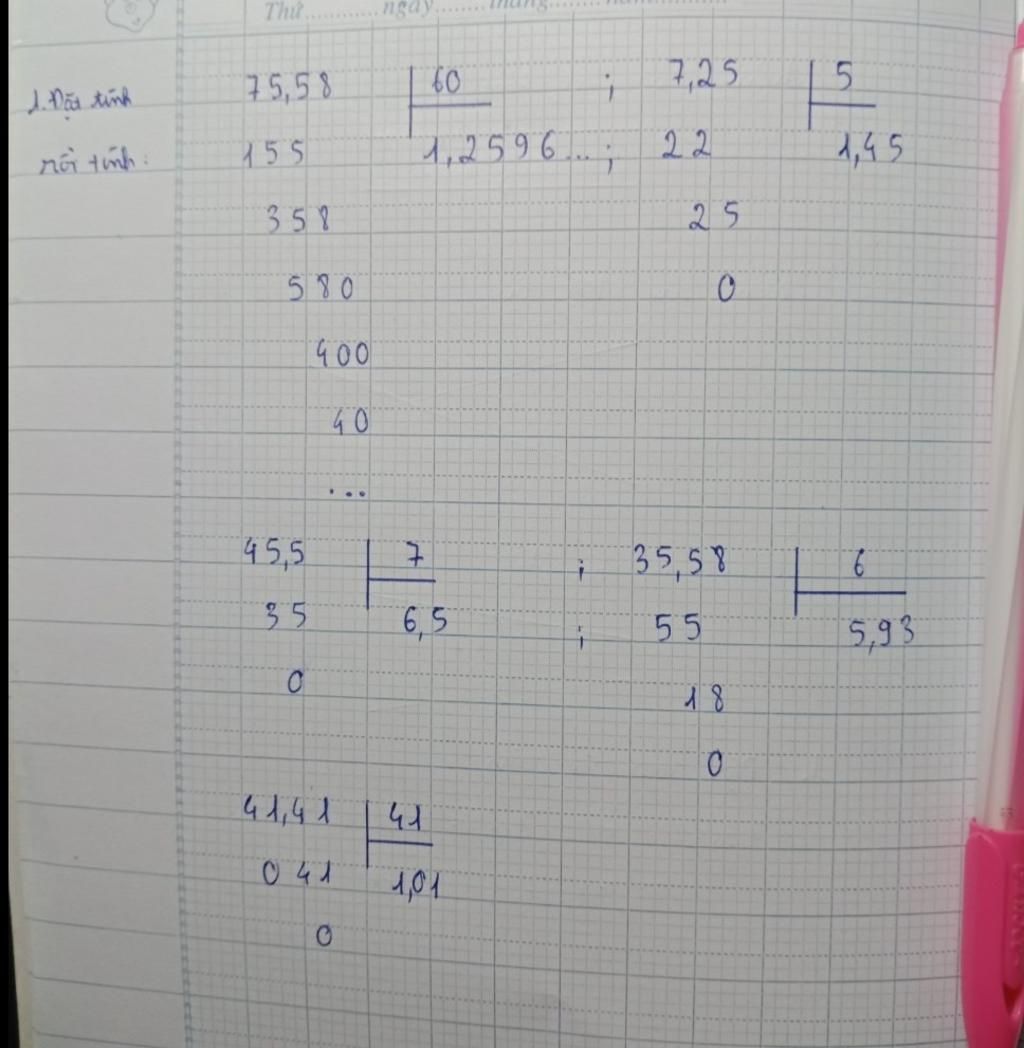 Thứ ngày tháng năm
1. Đặt tính 75,58 60 ; 7,25 5
rồi tính: 155 1,2596... ; 22 1,45
358 25
580 0
400
40
...
45,5 7 ; 35,58 6
35 6,5 ; 55 5,93
0 18
0
41,41 41
041 1,01
0